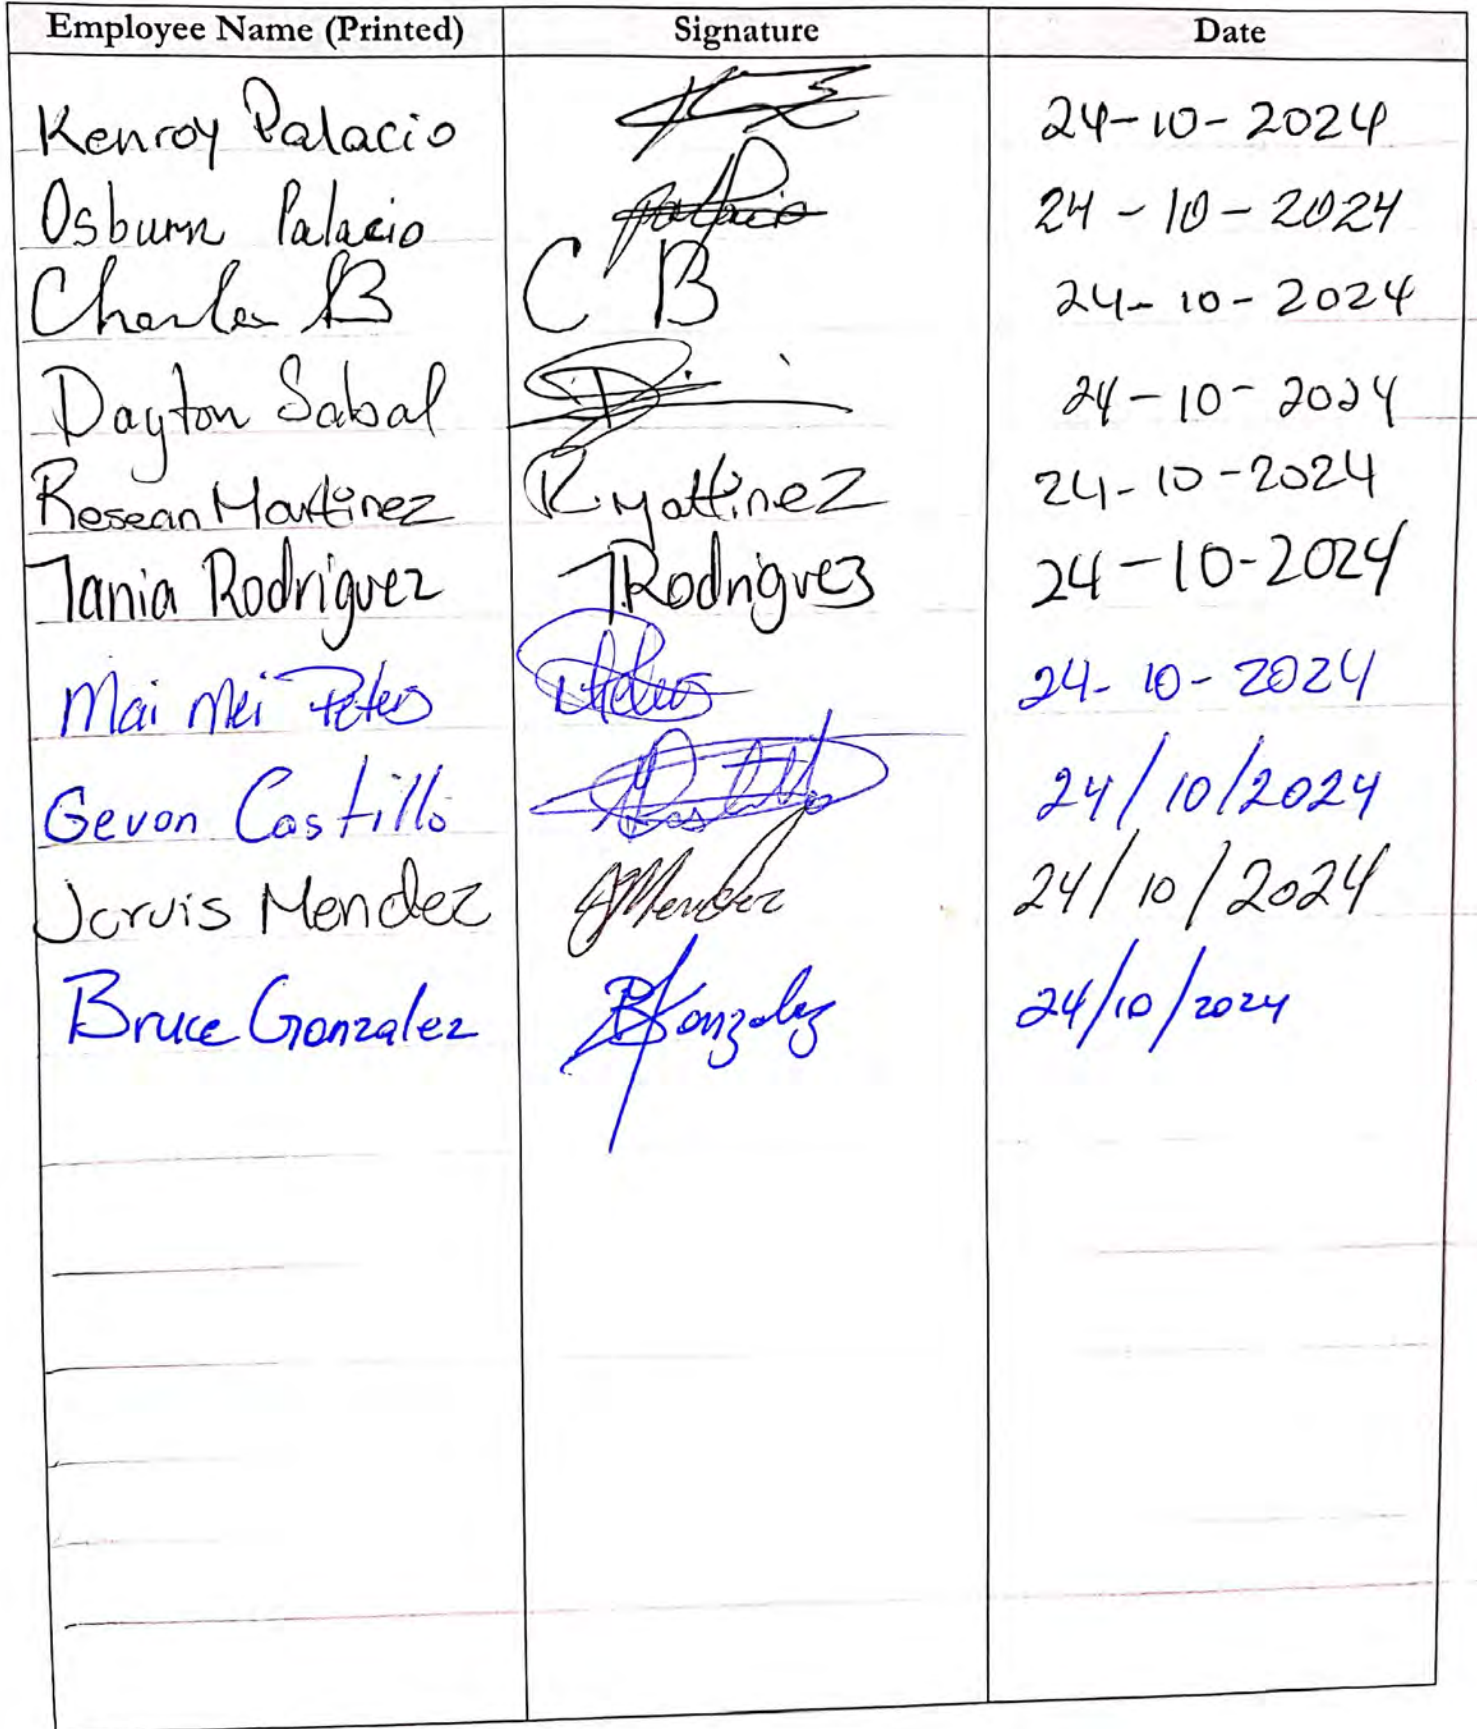 Employee Name (Printed) Signature Date
Kenroy Palacio 24-10-2024
Osburn Palacio palacio 24-10-2024
Charles B C B 24-10-2024
Dayton Sabal 24-10-2024
Rosean Martinez R. 24-10-2024
Tania Rodriguez T.Rodriguez 24-10-2024
Mai Mei Peters 24-10-2024
Gevon Castillo Castillo 24/10/2024
Jarvis Mendez JMendez 24/10/2024
Bruce Gonzalez BGonzalez 24/10/2024